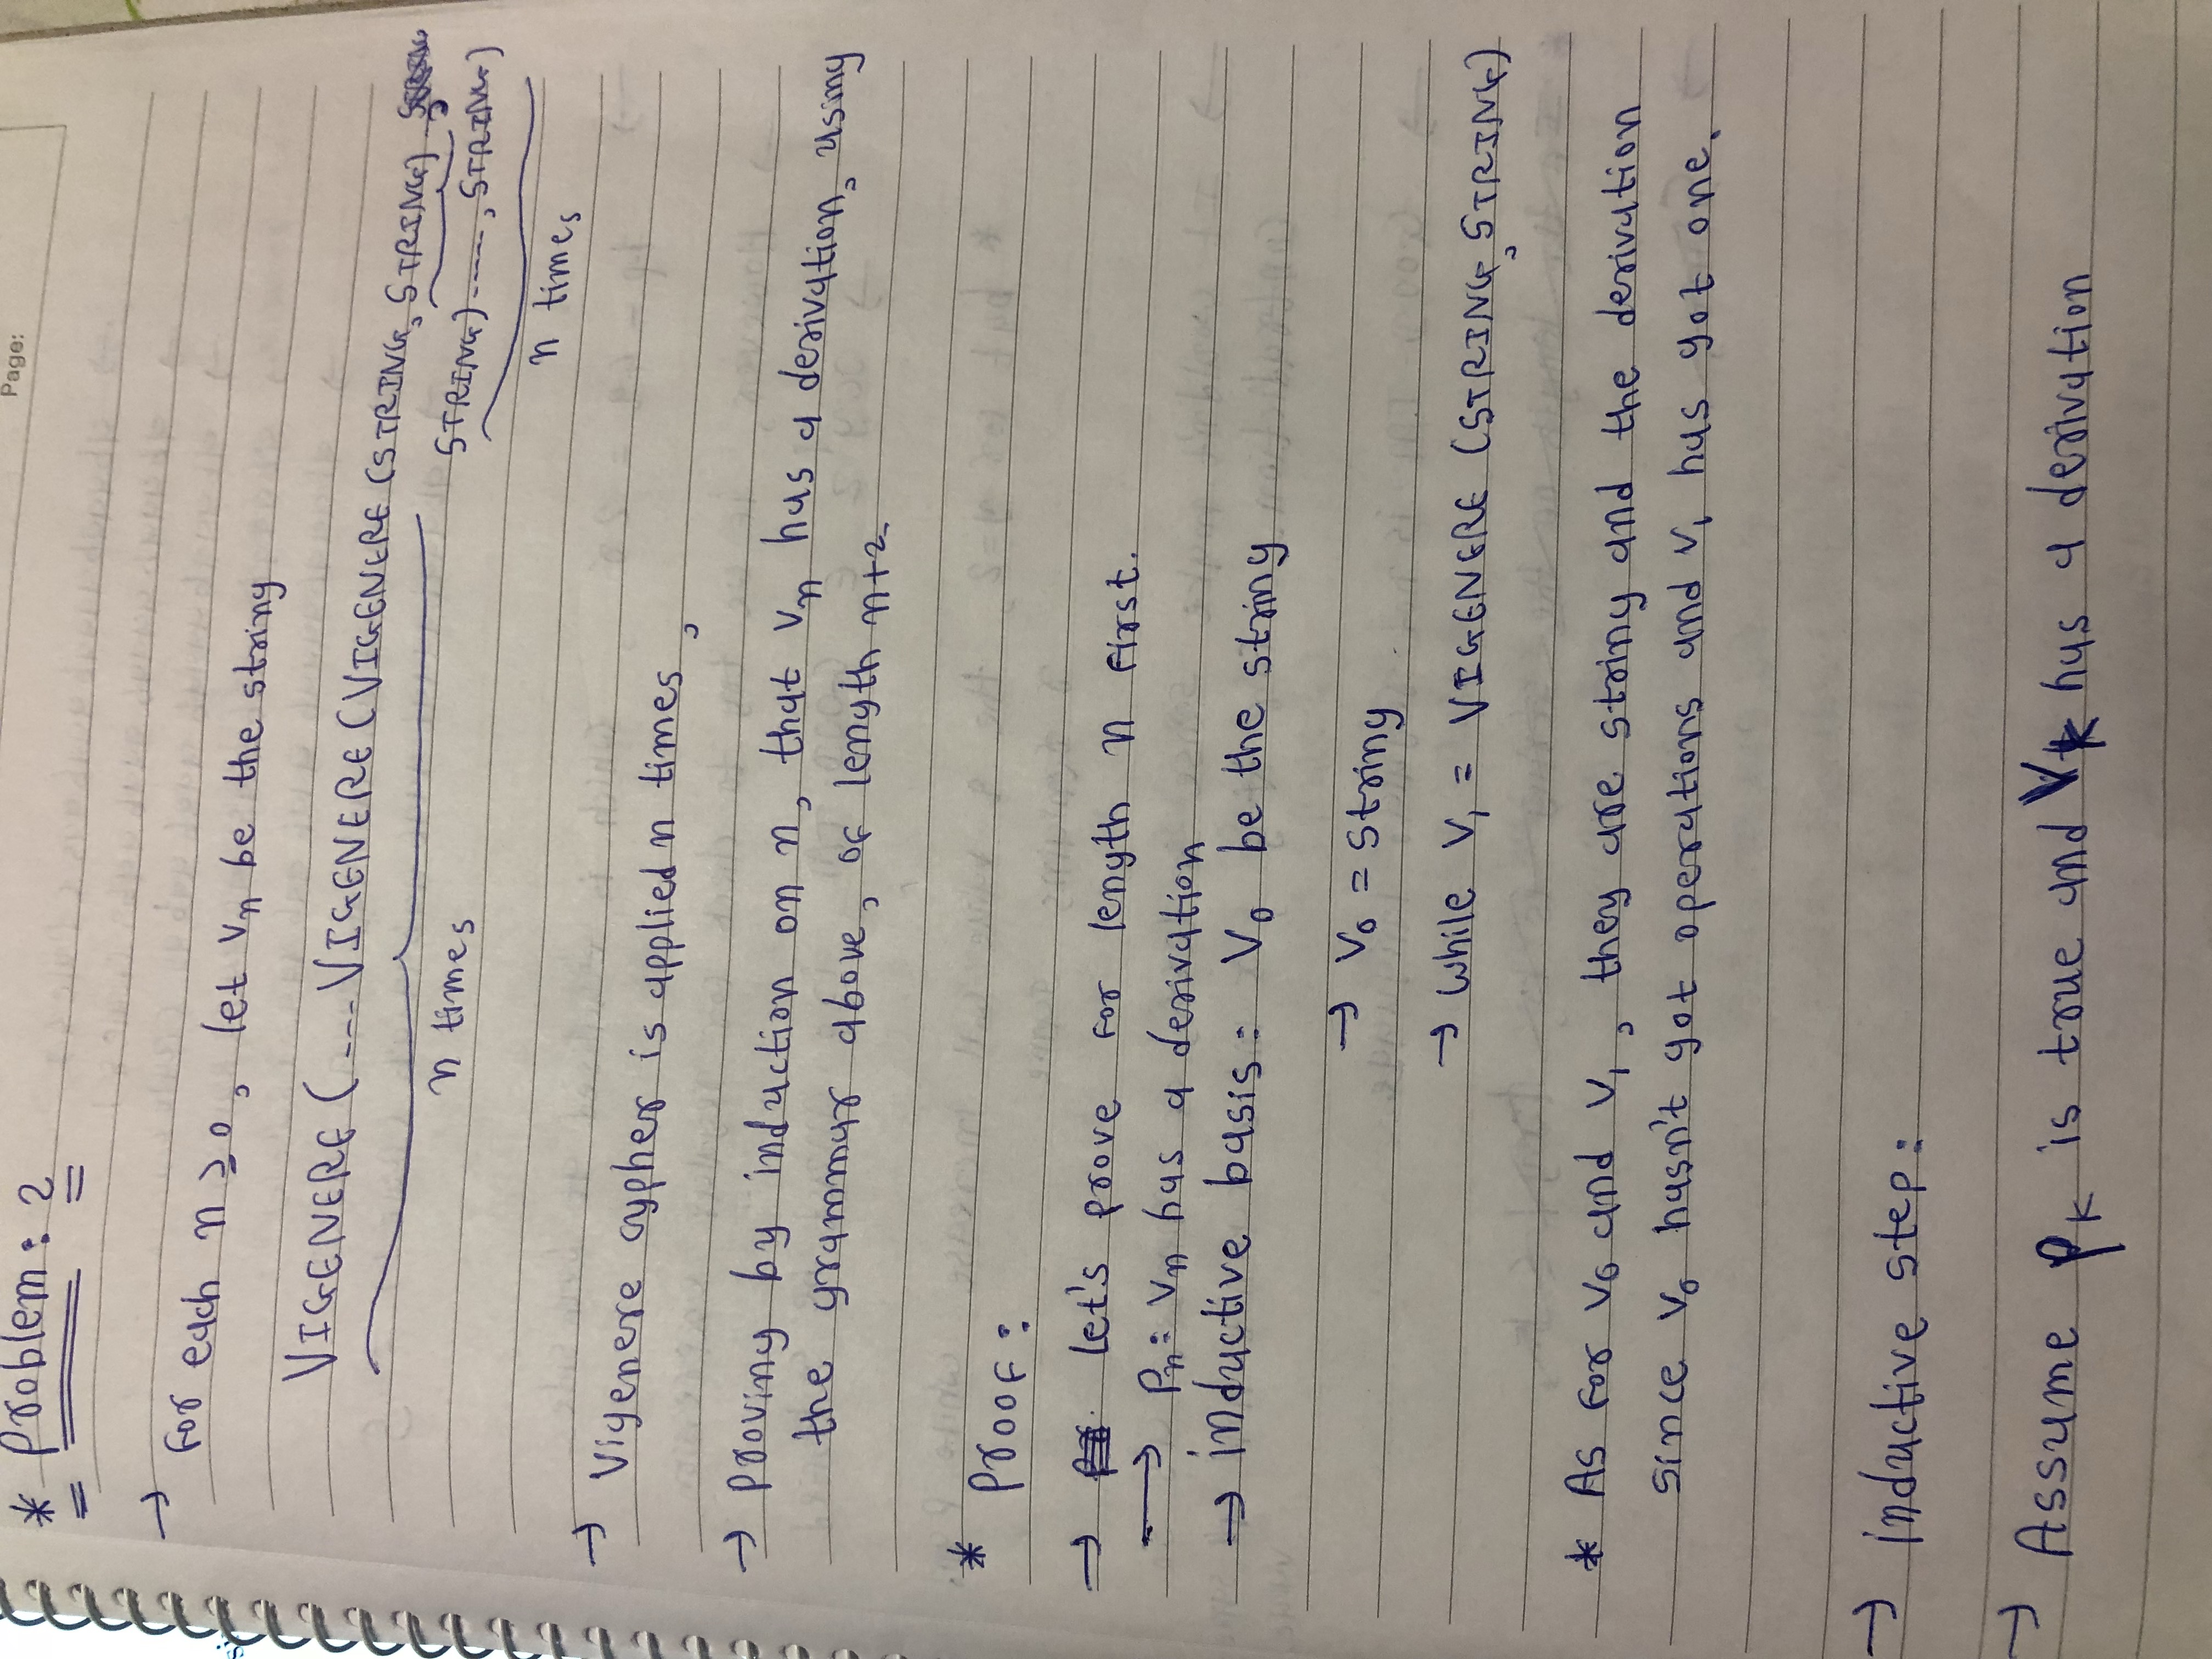 Page:
* Problem: 2
→ For each n ≥ 0, let Vn be the string
VIGENERE (---VIGENERE (VIGENERE (STRING, STRING),
n times
STRING)-----, STRING)
n times
→ Vigenere cypher is applied n times,
→ Proving by induction on n, that Vn has a derivation, using
the grammar above, of length n+2.
* Proof:
→ let's prove for length n first.
→ Pn: Vn has a derivation
→ inductive basis: V0 be the string
→ V0 = string
→ while V1 = VIGENERE (STRING, STRING)
* As for V0 and V1, they are string and the derivation
since V0 hasn't got operations and V1 has got one.
→ inductive step:
→ Assume Pk is true and Vk has a derivation